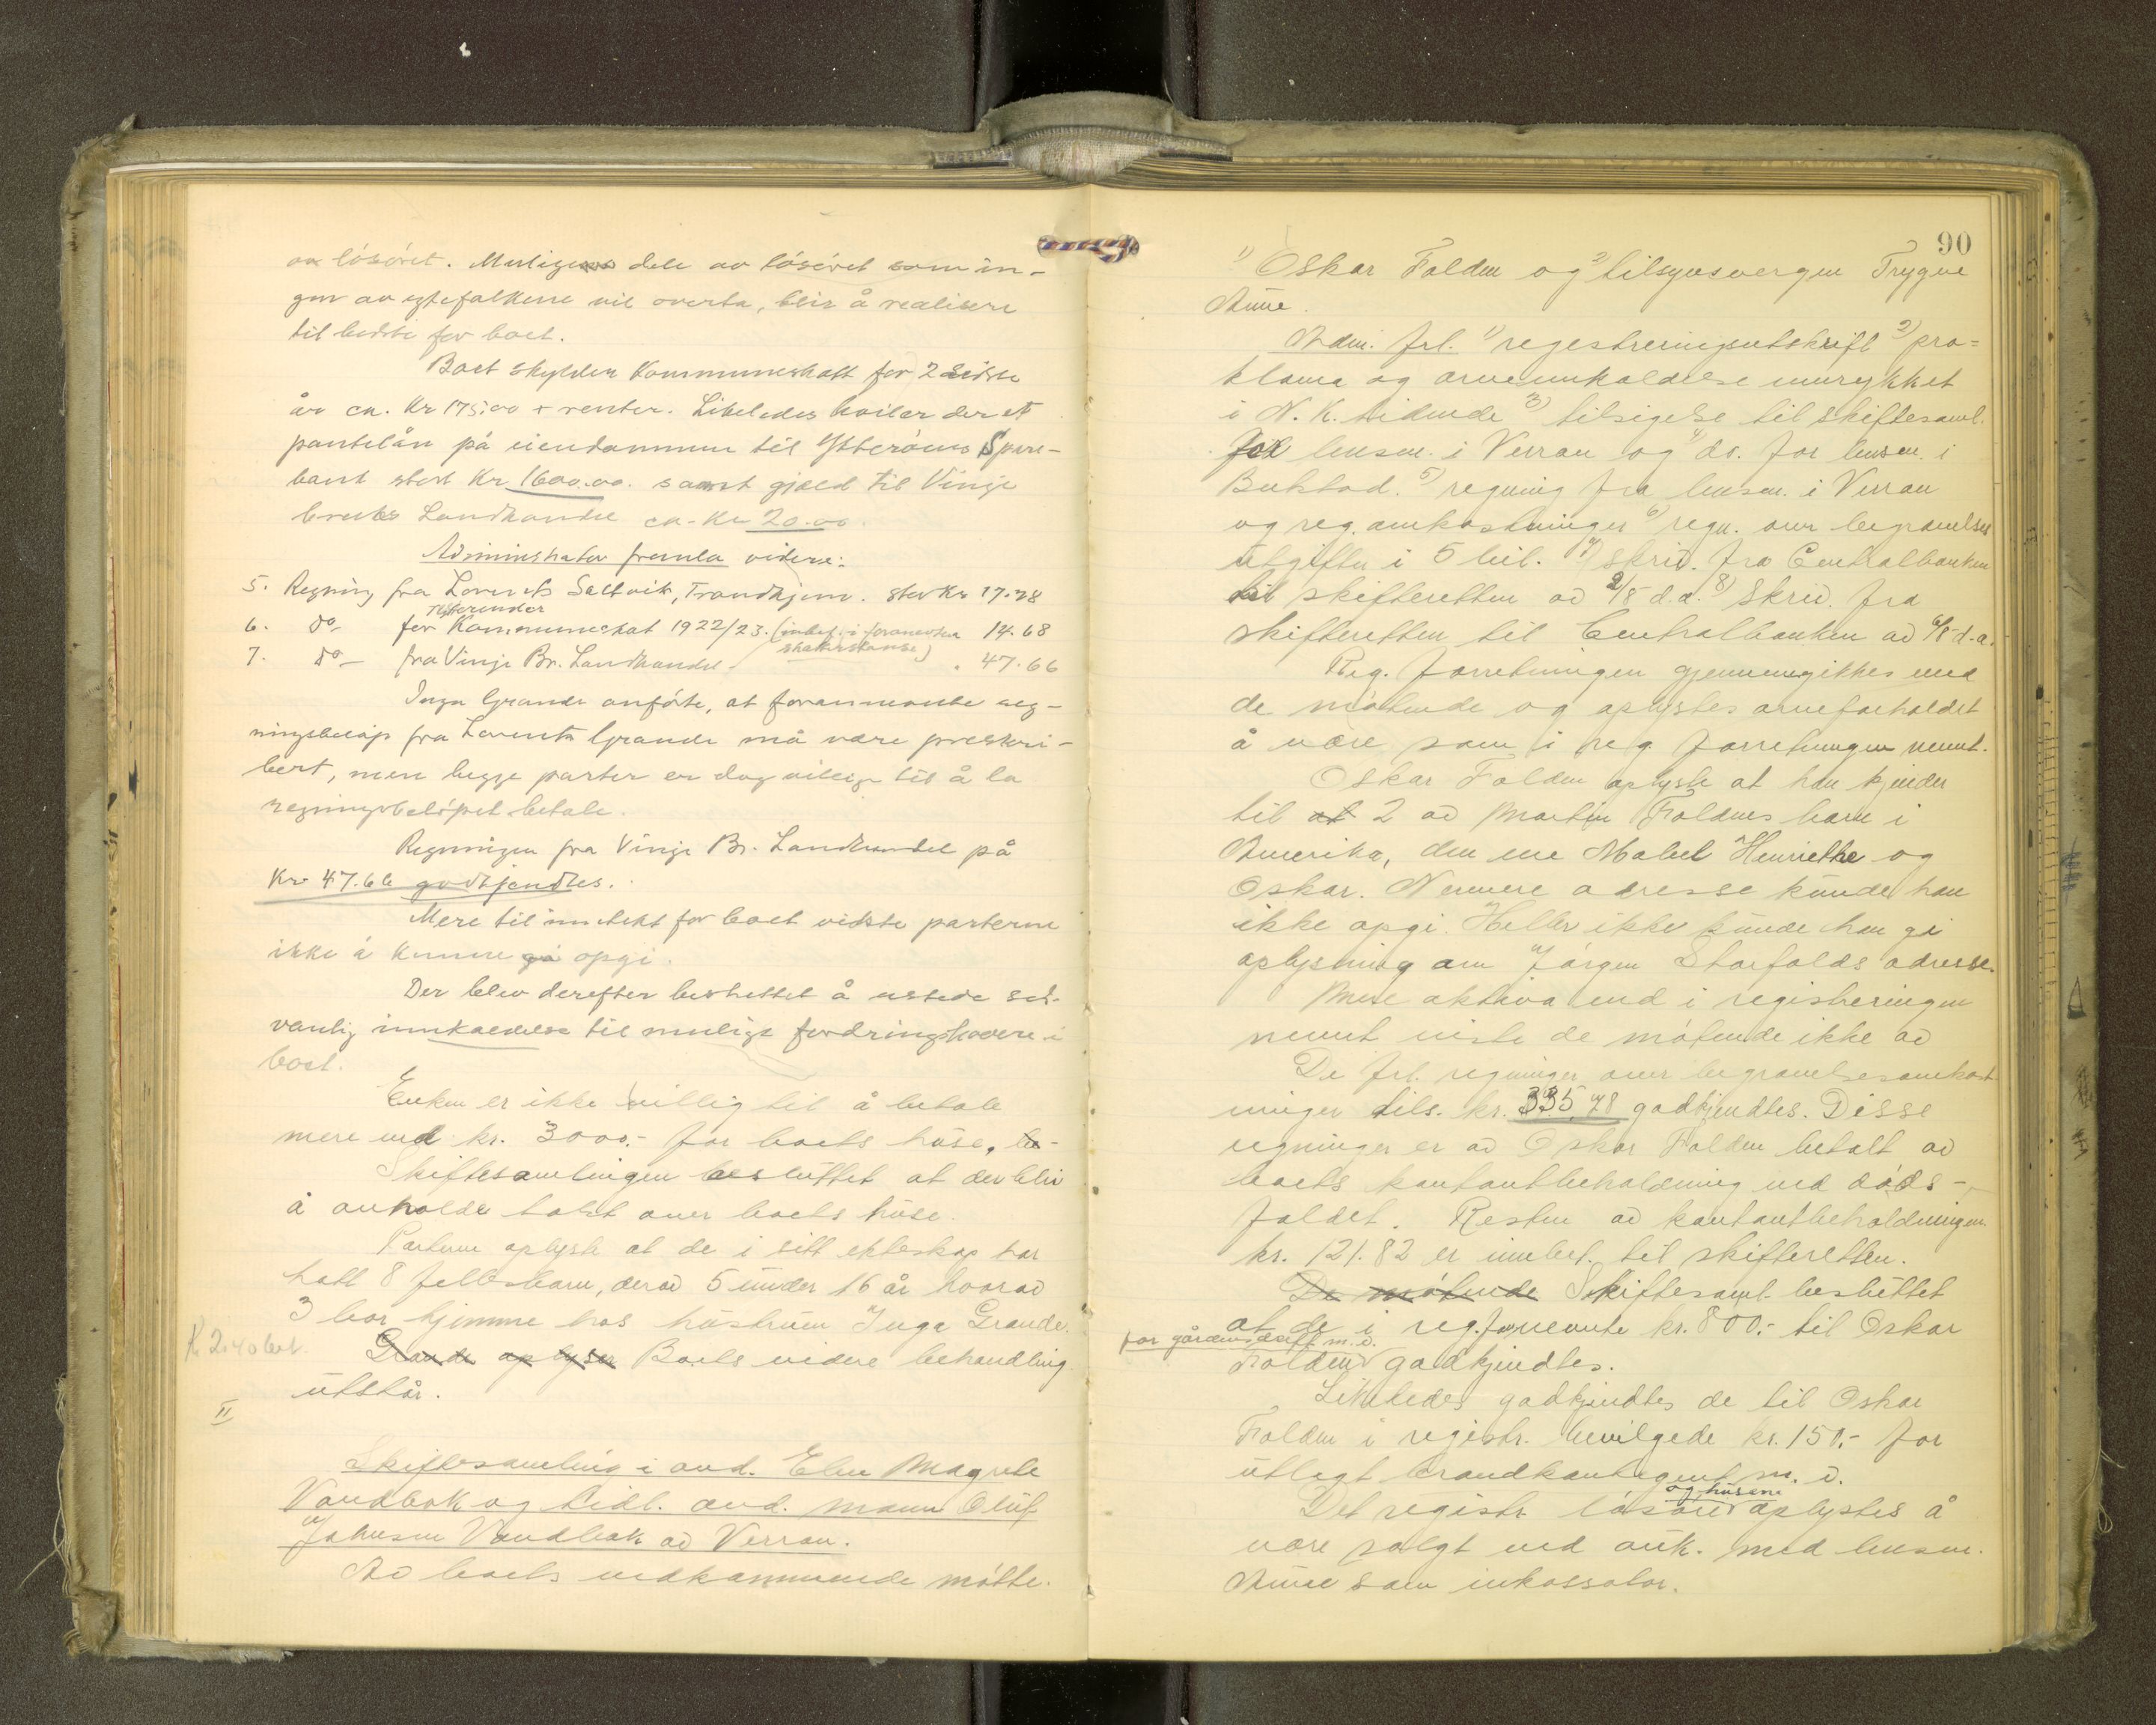 av lösöret. Muligens dele av lösöret som in-
gen av egtefolkene vil overta, blir å realisere
til bedste for boet.
Boet skylder Kommuneskatt for 2 sidste
år ca. kr 175.00 + renter. Likeledes hviler der et
pantelån på eiendommen til Ytteröens Spare-
bank stort kr 1600.00. samt gjæld til Vinje
bruks Landhandel ca. kr 20.00.
Administrator fremla videre:
5. Regning fra Lorents Saltvik, Trondhjem. stor kr 17.78
resterender
6. do - for Kommuneskat 1922/23. (indbef. i foranevnte 14.68
skatterestanse)
7. do - fra Vinje Br. Landhandel - " 47.66
Inga Grande anförte, at forannevnte reg-
ningsbelöp fra Lorents Grande må være preskri-
bert, men begge parter er dog villige til å la
regningsbelöpet betale.
Regningen fra Vinje Br. Landhandel på
Kr 47.66 godkjendtes.
Mere til inntekt for boet vidste parterne
ikke å kunne gi opgi.
Der blev derefter besluttet å utstede sed-
vanlig innkaldelse til mulige fordringshavere i
boet.
Enken er ikke villig til å betale
mere end kr. 3000.- for boets huse, bo-
Skiftesamlingen besluttet at der blir
å avholde takst over boets huse.
Parterne oplyste at de i sitt ekteskap har
hatt 8 fellesbarn, derav 5 under 16 år hvorav
3 bor hjemme hos hustruen Inga Grande.
Kr 2.40 bet.
Grande oplyser Boets videre behandling
utstår.
II
Skiftesamling i avd. Elen Magrete
Vandbak og tidl. avd. mann Oluf
Johnsen Vandbak av Verran.
Av boets vedkommende mötte.
90
1) Oskar Folden og 2) tilsynsvergen Trygve
Aune.
Adm. frl. 1) registreringsutskrift 2) pro-
klama og arveinnkaldelse innrykket
i N. K. tidende 3) tilsigelse til skiftesaml.
for lensm. i Verran og 4) do. for lensm. i
Bukstad. 5) regning fra lensm. i Verran
og reg. omkostninger 6) regn. over begravelses
utgifter i 5 bil. 7) skriv. fra Centralbanken
til skifteretten av 2/5 d.a. 8) Skriv. fra
skifteretten til Centralbanken av 6/5 d.a.
Reg. forretningen gjennemgikkes med
de mötende og oplystes arveforholdet
å være som i reg. forretningen nevnt.
Oskar Folden oplyste at han kjender
til at 2 av Martin Foldens barn i
Amerika, den ene Mabel Henriethe og
Oskar. Nermere adresse kunde han
ikke opgi. Heller ikke kunde han gi
oplysning om Jörgen Storfolds adresse.
Mere aktiva end i registreringen
nevnt viste de mötende ikke av
De frl. regninger over begravelsesomkost-
ninger tils. kr. 335,78 godkjendtes. Disse
regninger er av Oskar Folden betalt av
boets kontantbeholdning ved döds-
faldet. Resten av kontantbeholdningen
kr. 121.82 er innbet. til skifteretten.
De mötende Skiftesaml. besluttet
at de i reg.forr nevnte kr. 800.- til Oskar
for gårdens drift m.v.
Folden godkjendtes.
Likeledes godkjendtes de til Oskar
Folden i registr. bevilgede kr. 150.- for
utlagt brandkontingent m. v.
og husene
Det registr. lösöre oplystes å
være solgt ved auk. med lensm.
Aune som inkassator.